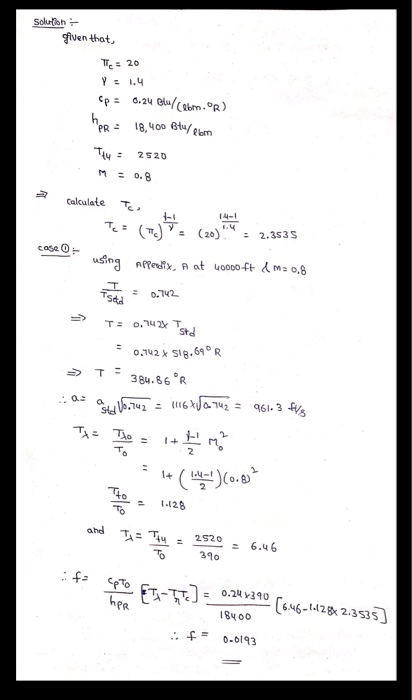 Solution :-
given that,
πc = 20
γ = 1.4
cp = 0.24 Btu/(lbm.°R)
hPR = 18,400 Btu/lbm
Tt4 = 2520
M = 0.8
⇒ calculate τc,
τc = (πc)^(γ-1)/γ = (20)^(1.4-1)/1.4 = 2.3535
case ① :-
using Appendix, A at 40000ft & M=0.8
T/Tstd = 0.742
⇒ T = 0.742 x Tstd
= 0.742 x 518.69° R
⇒ T = 384.86 °R
∴ a = astd √0.742 = 1116 x √0.742 = 961.3 ft/s
τλ = Tt0/T0 = 1 + (γ-1)/2 M0^2
= 1 + ((1.4-1)/2)(0.8)^2
Tt0/T0 = 1.128
and τλ = Tt4/T0 = 2520/390 = 6.46
∴ f = cpT0/hPR [τλ - τrτc] = 0.24 x 390/18400 [6.46 - 1.128 x 2.3535]
∴ f = 0.0193